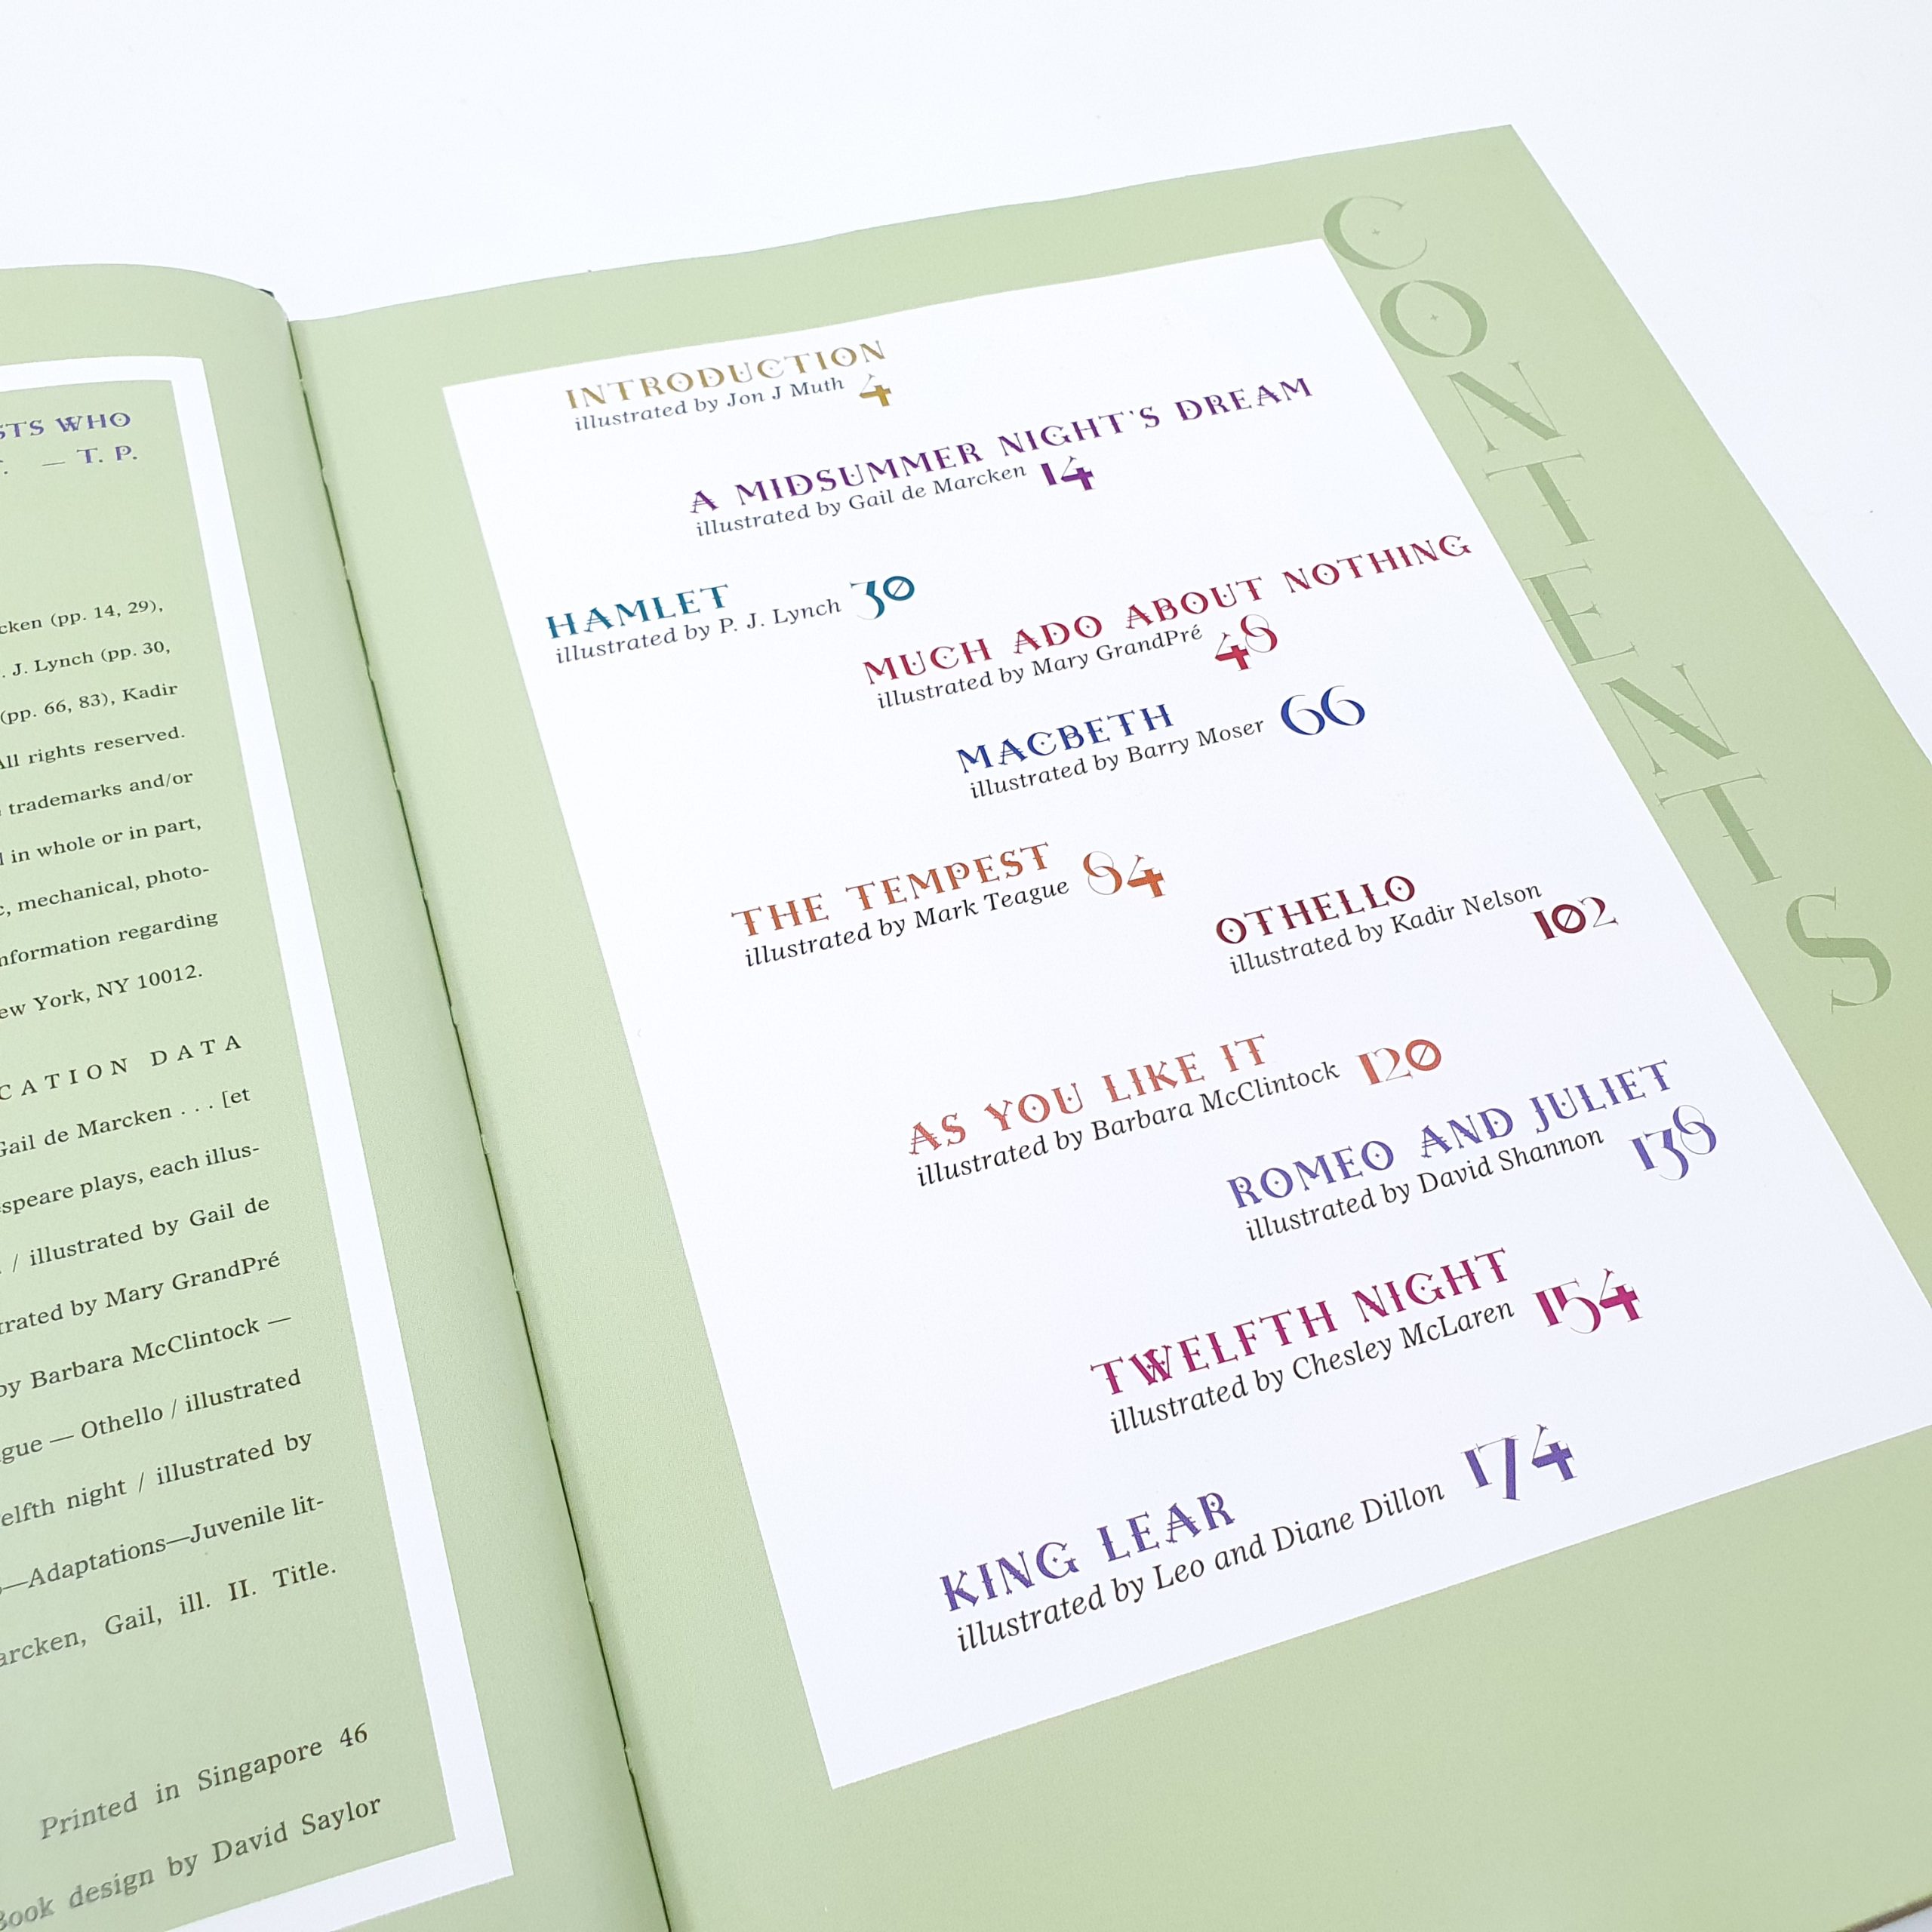 WHO
— T. P.
(pp. 14, 29),
J. Lynch (pp. 30,
(pp. 66, 83), Kadir
All rights reserved.
trademarks and/or
in whole or in part,
mechanical, photo-
regarding
York, NY 10012.
DATA
Gail de Marcken . . . [et
plays, each illus-
/ illustrated by Gail de
by Mary GrandPré
by Barbara McClintock —
— Othello / illustrated
night / illustrated by
—Adaptations—Juvenile lit-
Gail, ill. II. Title.
Printed in Singapore 46
Book design by David Saylor
CONTENTS
INTRODUCTION
illustrated by Jon J Muth 4
A MIDSUMMER NIGHT'S DREAM
illustrated by Gail de Marcken 14
HAMLET
illustrated by P. J. Lynch 30
MUCH ADO ABOUT NOTHING
illustrated by Mary GrandPré 48
MACBETH
illustrated by Barry Moser 66
THE TEMPEST
illustrated by Mark Teague 84
OTHELLO
illustrated by Kadir Nelson
102
AS YOU LIKE IT
illustrated by Barbara McClintock 120
ROMEO AND JULIET
illustrated by David Shannon 138
TWELFTH NIGHT
illustrated by Chesley McLaren 154
KING LEAR
illustrated by Leo and Diane Dillon 174